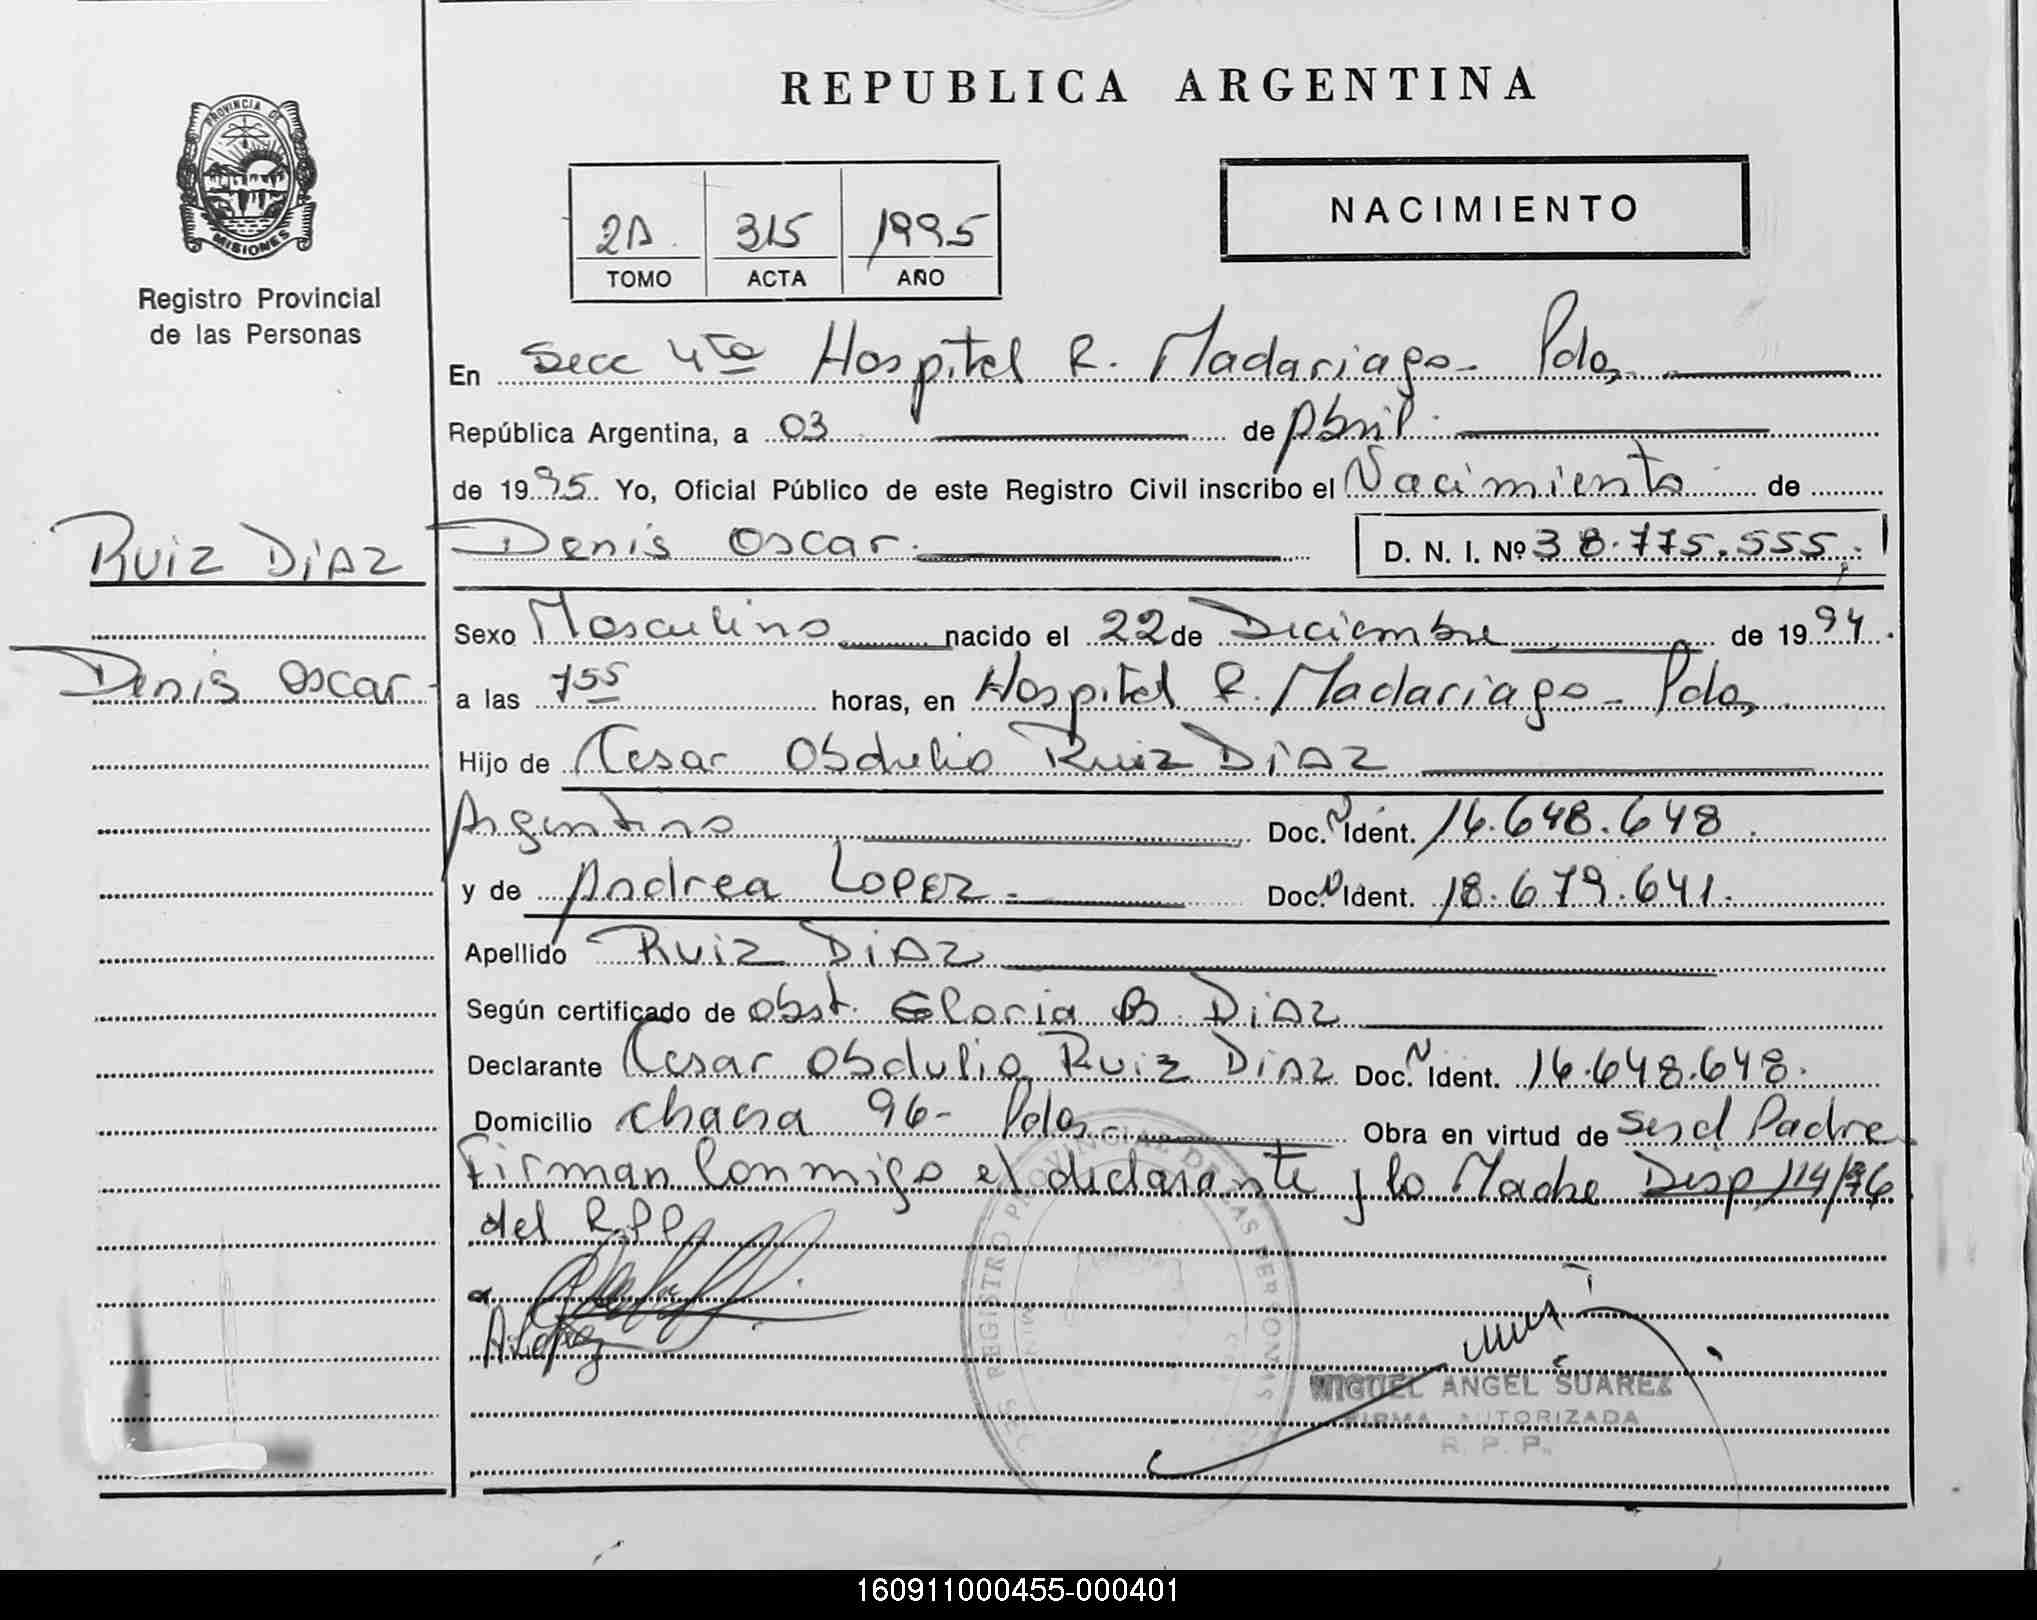 REPUBLICA ARGENTINA
PROVINCIA DE
MISIONES
Registro Provincial
de las Personas
2A 315 1995
TOMO ACTA AÑO
NACIMIENTO
En Secc 4ta Hospital R. Madariaga - Pdas
República Argentina, a 03 de Abril
de 1995 Yo, Oficial Público de este Registro Civil inscribo el Nacimiento de
RUIZ DIAZ
Denis Oscar. D. N. I. Nº 38.775.555.
Sexo Masculino nacido el 22 de Diciembre de 1994.
Denis Oscar
a las 7 55 horas, en Hospital R. Madariaga - Pdas
Hijo de Cesar Obdulio Ruiz DIAZ
Argentino Doc. N Ident. 16.648.648.
y de Andrea LOPEZ. Doc. N Ident. 18.679.641.
Apellido RUIZ DIAZ
Según certificado de obst. Gloria B. DIAZ
Declarante Cesar Obdulio Ruiz DIAZ Doc. N Ident. 16.648.648.
Domicilio chacra 96 - Pdas Obra en virtud de ser el Padre
Firman Conmigo el declarante y la Madre Disp 114/76
del R.P.P.
A. Lopez
REGISTRO PROVINCIAL DE LAS PERSONAS
MIGUEL ANGEL SUAREZ
FIRMA AUTORIZADA
R. P. P.
160911000455-000401